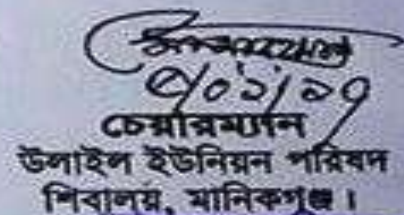 চেয়ারম্যান
উলাইল ইউনিয়ন পরিষদ
শিবালয়, মানিকগঞ্জ।